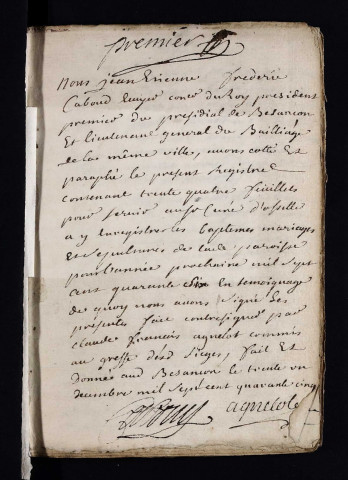 premier
Nous jean Etienne frederic
Caboud Ecuyer coner du Roy president
premier du presidial de Besancon
Et lieutenant general du Bailliage
de la même ville, avons cotté Et
paraphé le present Registre
contenant trente quatre feuillets
pour servir au Sr Curé d'osselle
a y Enregistrer les baptemes mariages
Et sepultures de lad. paroisse
pour l'année prochaine mil sept
cent quarante six En temoignage
de quoy nous avons signé les
presentes fait contresigner par
claude francois agnelot commis
au greffe desd sieges, fait Et
donnée aud Besancon le trente un
decembre mil sept cent quarante cinq
agnelot